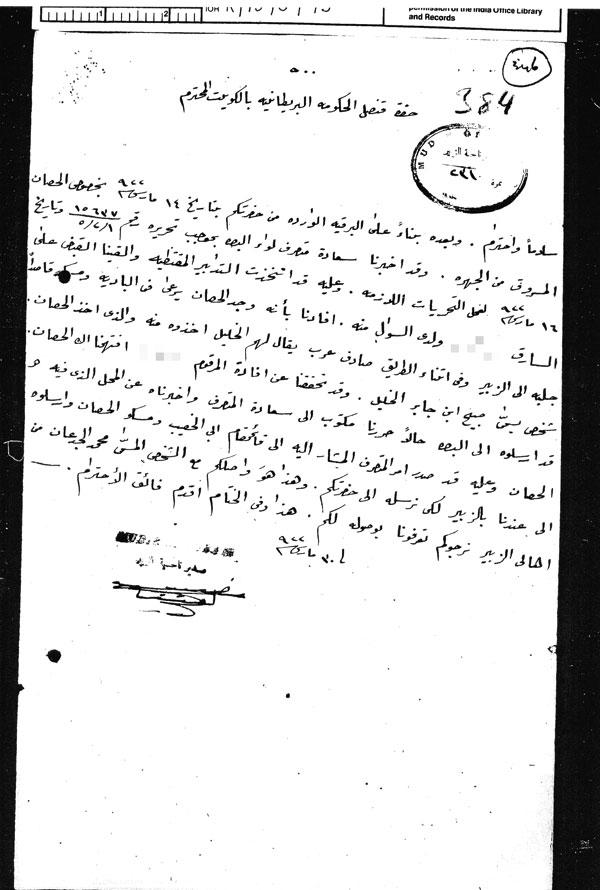 permission of the India Office Library
and Records
384
حضرة قنصل الحكومه البريطانيه بالكويت المحترم
سلاماً واحترام . وبعده بناءً على البرقيه الوارده من حضرتكم بتاريخ ١٤ مارس ٩٢٢ بخصوص الحصان
المسروق من الجهره . وقد اخبرنا سعادة متصرف لواء البصره بموجب تحريره رقم ١٥٦٣٧ وتاريخ
١٦ مارس ٩٢٢ لعمل التحريات اللازمه . وعليه قد اتخذت التدابير المقتضيه والقينا القبض على
السارق ولدى السوال منه . افادنا بأنه وجد الحصان يرعى في الباديه ومسكه قاصداً
جلبه الى الزبير وفي اثناء الطريق صادف عرب يقال لهم الخليل اخذوه منه والذي اخذ الحصان
شخص يسمى صبيح ابن جابر الخليل . وقد تحققنا عن افادة المرقوم افتهمنا ان الحصان
قد ارسلوه الى البصره حالاً حررنا مكتوب الى سعادة المتصرف واخبرناه عن المحل الذي فيه
الحصان وعليه قد صدر امر المتصرف المشار اليه الى قائمقام ابي الخصيب ومسكو الحصان وارسلوه
الى عندنا بالزبير لكي نرسله الى حضرتكم . وهذا هو واصلكم مع الشخص المسمى محمد من
اهالي الزبير نرجوكم تعرفونا بوصوله لكم . هذا وفي الختام اقدم فائق الأحترام .
٣٠ مارس ٩٢٢
مدير ناحية الزبير